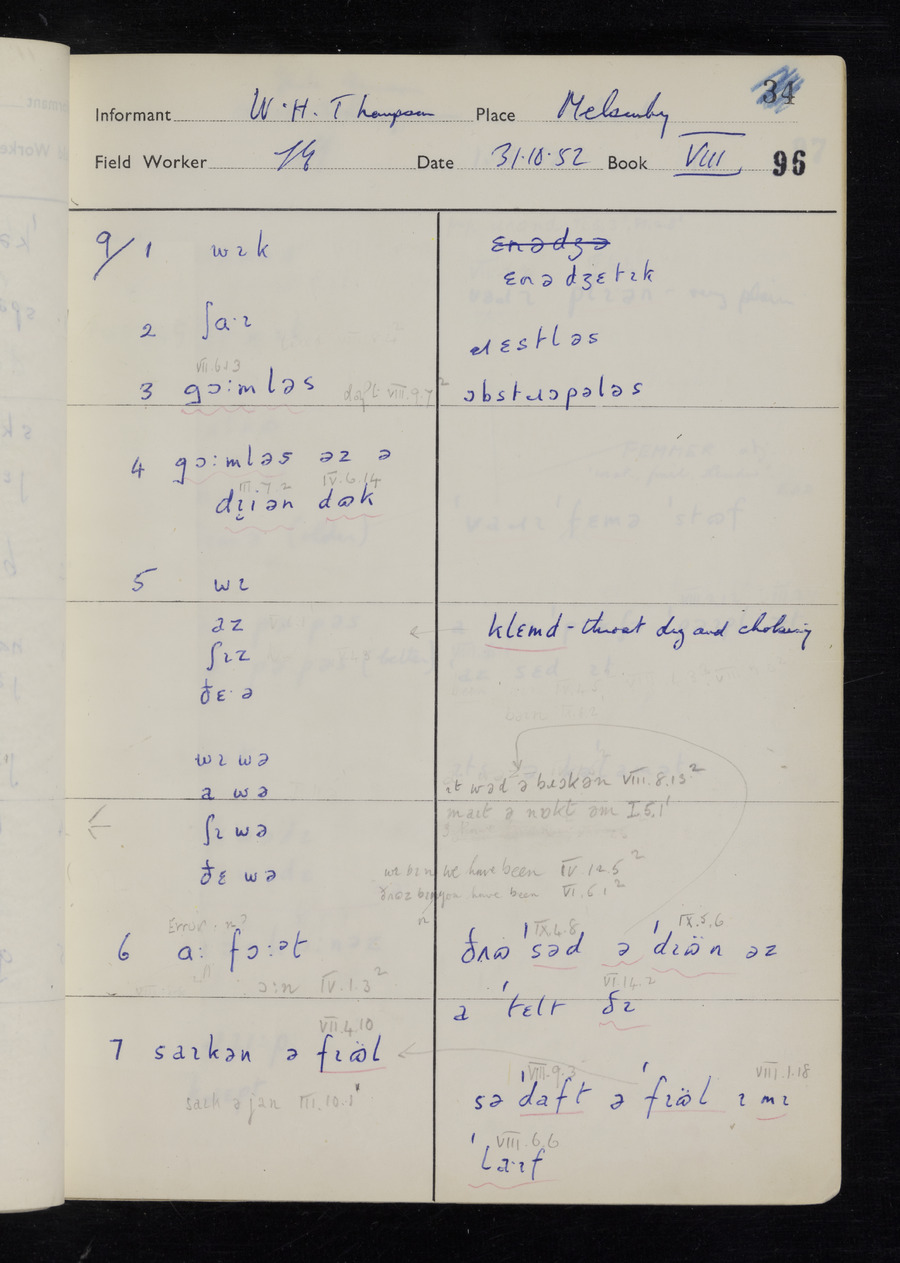 34
Informant W. H. Thompson Place Melsonby
Field Worker Date 31.10.52 Book VIII 96
9/ 1 wɪk
2 ʃa·ɪ
VII.6.13
3 gɔ:mləs VIII.9.7²
4 gɔ:mləs əz ə
III.7.2 IV.6.14
dɹ̩ɪən dɷk
5 wɪ
az
ʃɪz
ðɛ·ə
wɪ wə
a wə
ʃɪ wə
ðɛ wə
Error . n?
6 a: fɔ:ət
ɔ:n IV.1.3²
VII.4.10
7 saɪkən ə fɪɷ̈l
saɪk ə jan III.10.1
ɛnədʒə
ɛnədʒɛtɪk
ɹɛstləs
ɔbstɹɔpələs
klɛmd - throat dry and choking
ɪt wəd ə bɹɔkən VIII.8.13²
maɪt ə nɒkt əm I.5.1'
wɪ bɪn we have been IV.12.5²
you have been VI.5.1²
IX.4.8 IX.5.6
ðʌɷ 'səd ə 'dɪɷ̈n əz
VI.14.2
a 'tɛlt ðɪ
VIII.9.3 VIII.1.18
sə 'daft ə 'fɪɷ̈l ɪ mɪ
VIII.6.6
'la:ɪf